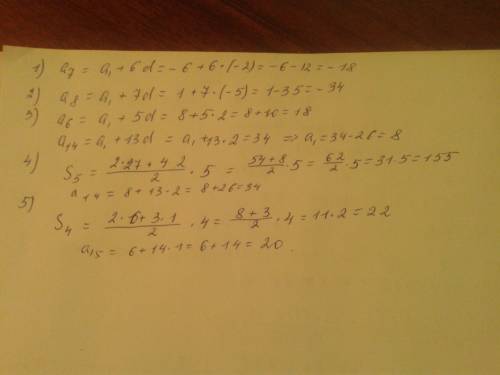 1) a₇ = a₁ + 6d = -6 + 6·(-2) = -6-12 = -18
2) a₈ = a₁ + 7d = 1 + 7·(-5) = 1-35 = -34
3) a₆ = a₁ + 5d = 8+5·2 = 8+10 = 18
a₁₄ = a₁ + 13d = a₁ + 13·2 = 34 => a₁ = 34-26 = 8
4) S₅ = (2·27 + 4·2)/2 · 5 = (54+8)/2 · 5 = 62/2 · 5 = 31·5 = 155
a₁₄ = 8 + 13·2 = 8+26 = 34
5) S₄ = (2·6+3·1)/2 · 4 = (8+3)/2 · 4 = 11·2 = 22
a₁₅ = 6+14·1 = 6+14 = 20.